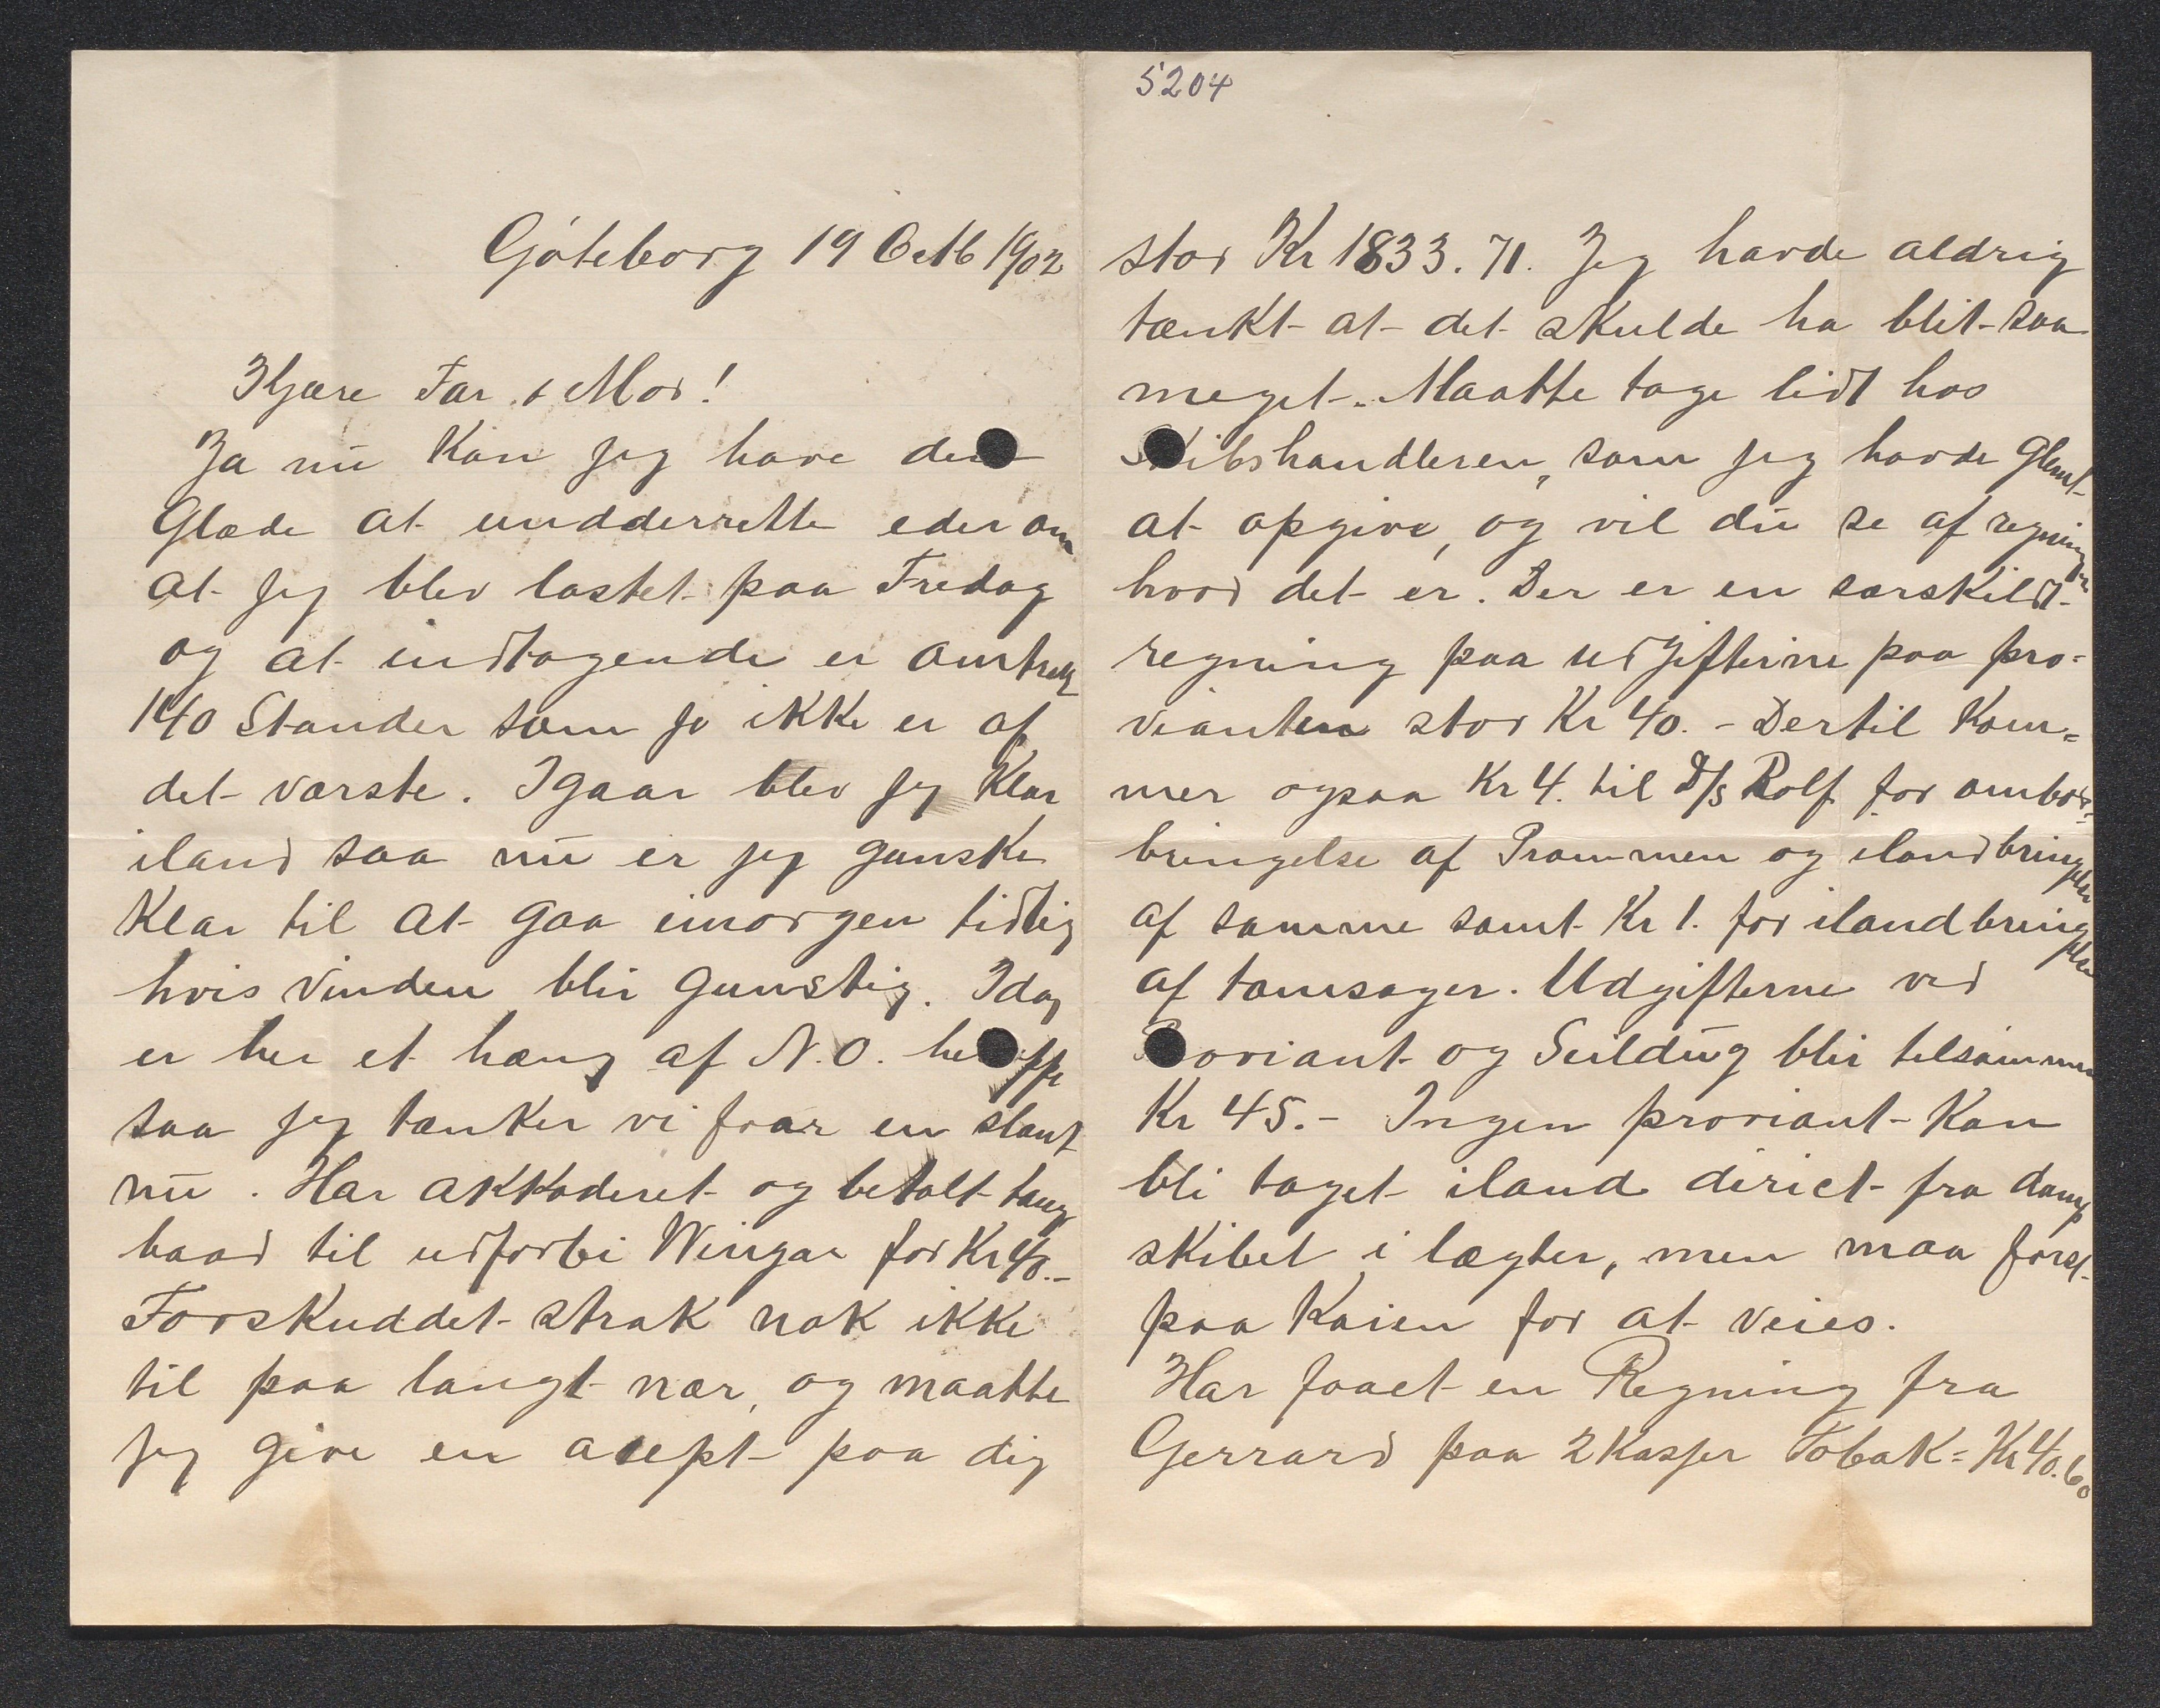 Göteborg 19 Octb 1902
Kjære Far & Mor!
Ja nu kan jeg have den
Glæde at undderrette eder om
at jeg blev lastet paa Fredag
og at indtagende er omtrek
140 Stander som jo ikke er af
det værste. Igaar blev jeg klar
iland saa nu er jeg ganske
klar til at gaa imorgen tidlig
hvis vinden blir gunstig. Idag
er her et hæng af N.O. he
saa jeg tænker vi faar en slant
nu. Har akkoderet og betalt taug
baad til udforbi Wingaa for Kr 40.-
Forskuddet strak nok ikke
til paa langt nær, og maatte
jeg give en acept paa dig
5204
stor Kr 1833.71. Jeg havde aldrig
tænkt at det skulde ha blit saa
meget. Maatte tage lidt hos
Skibshandleren, som jeg havde Glemt
at opgive, og vil du se af regningen
hvad det er. Der er en særskildt
regning paa udgifterne paa pro=
vianten stor Kr 40.- Dertil kom=
mer ogsaa Kr 4. til D/S Rolf for ombor=
bringelse af Prammen og ilandbringelse
af samme samt Kr 1. for ilandbringelse
af tomsager. Udgifterne ved
Proviant og Seildug blir tilsammen
Kr 45.- Ingen proviant kan
bli taget iland dirict fra damp
skibet i lægter, men maa først
paa Kaien for at veies.
Har faaet en Regning fra
Gerrard paa 2 Kasser Tobak = Kr 40.60